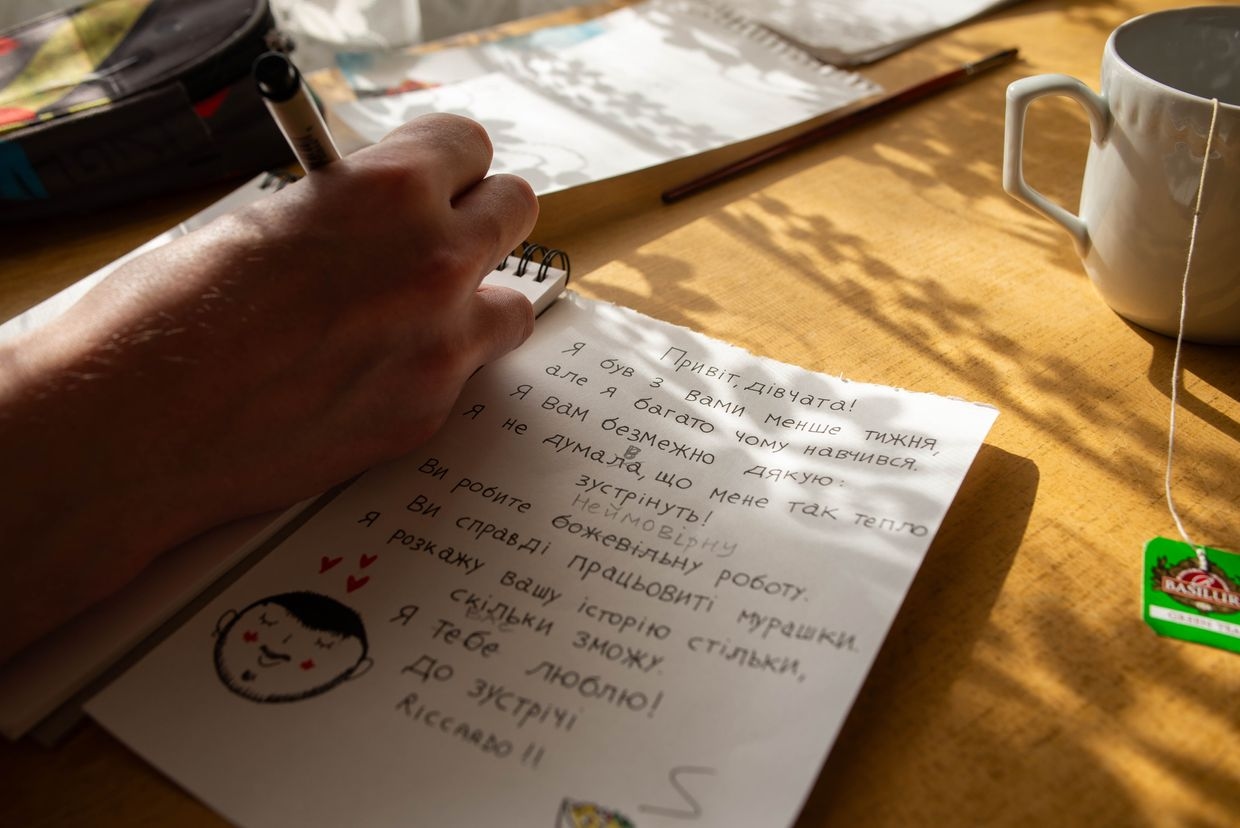 Привіт, дівчата!
Я був з вами менше тижня,
але я багато чому навчився.
Я вам безмежно дякую!
Я не думала, що мене так тепло
в
зустрінуть!
неймовірну
Ви робите божевільну роботу.
Ви справді працьовиті мурашки.
Я розкажу вашу історію стільки,
скільки зможу.
вас
Я тебе люблю!
До зустрічі
Riccardo !!
BASILUR